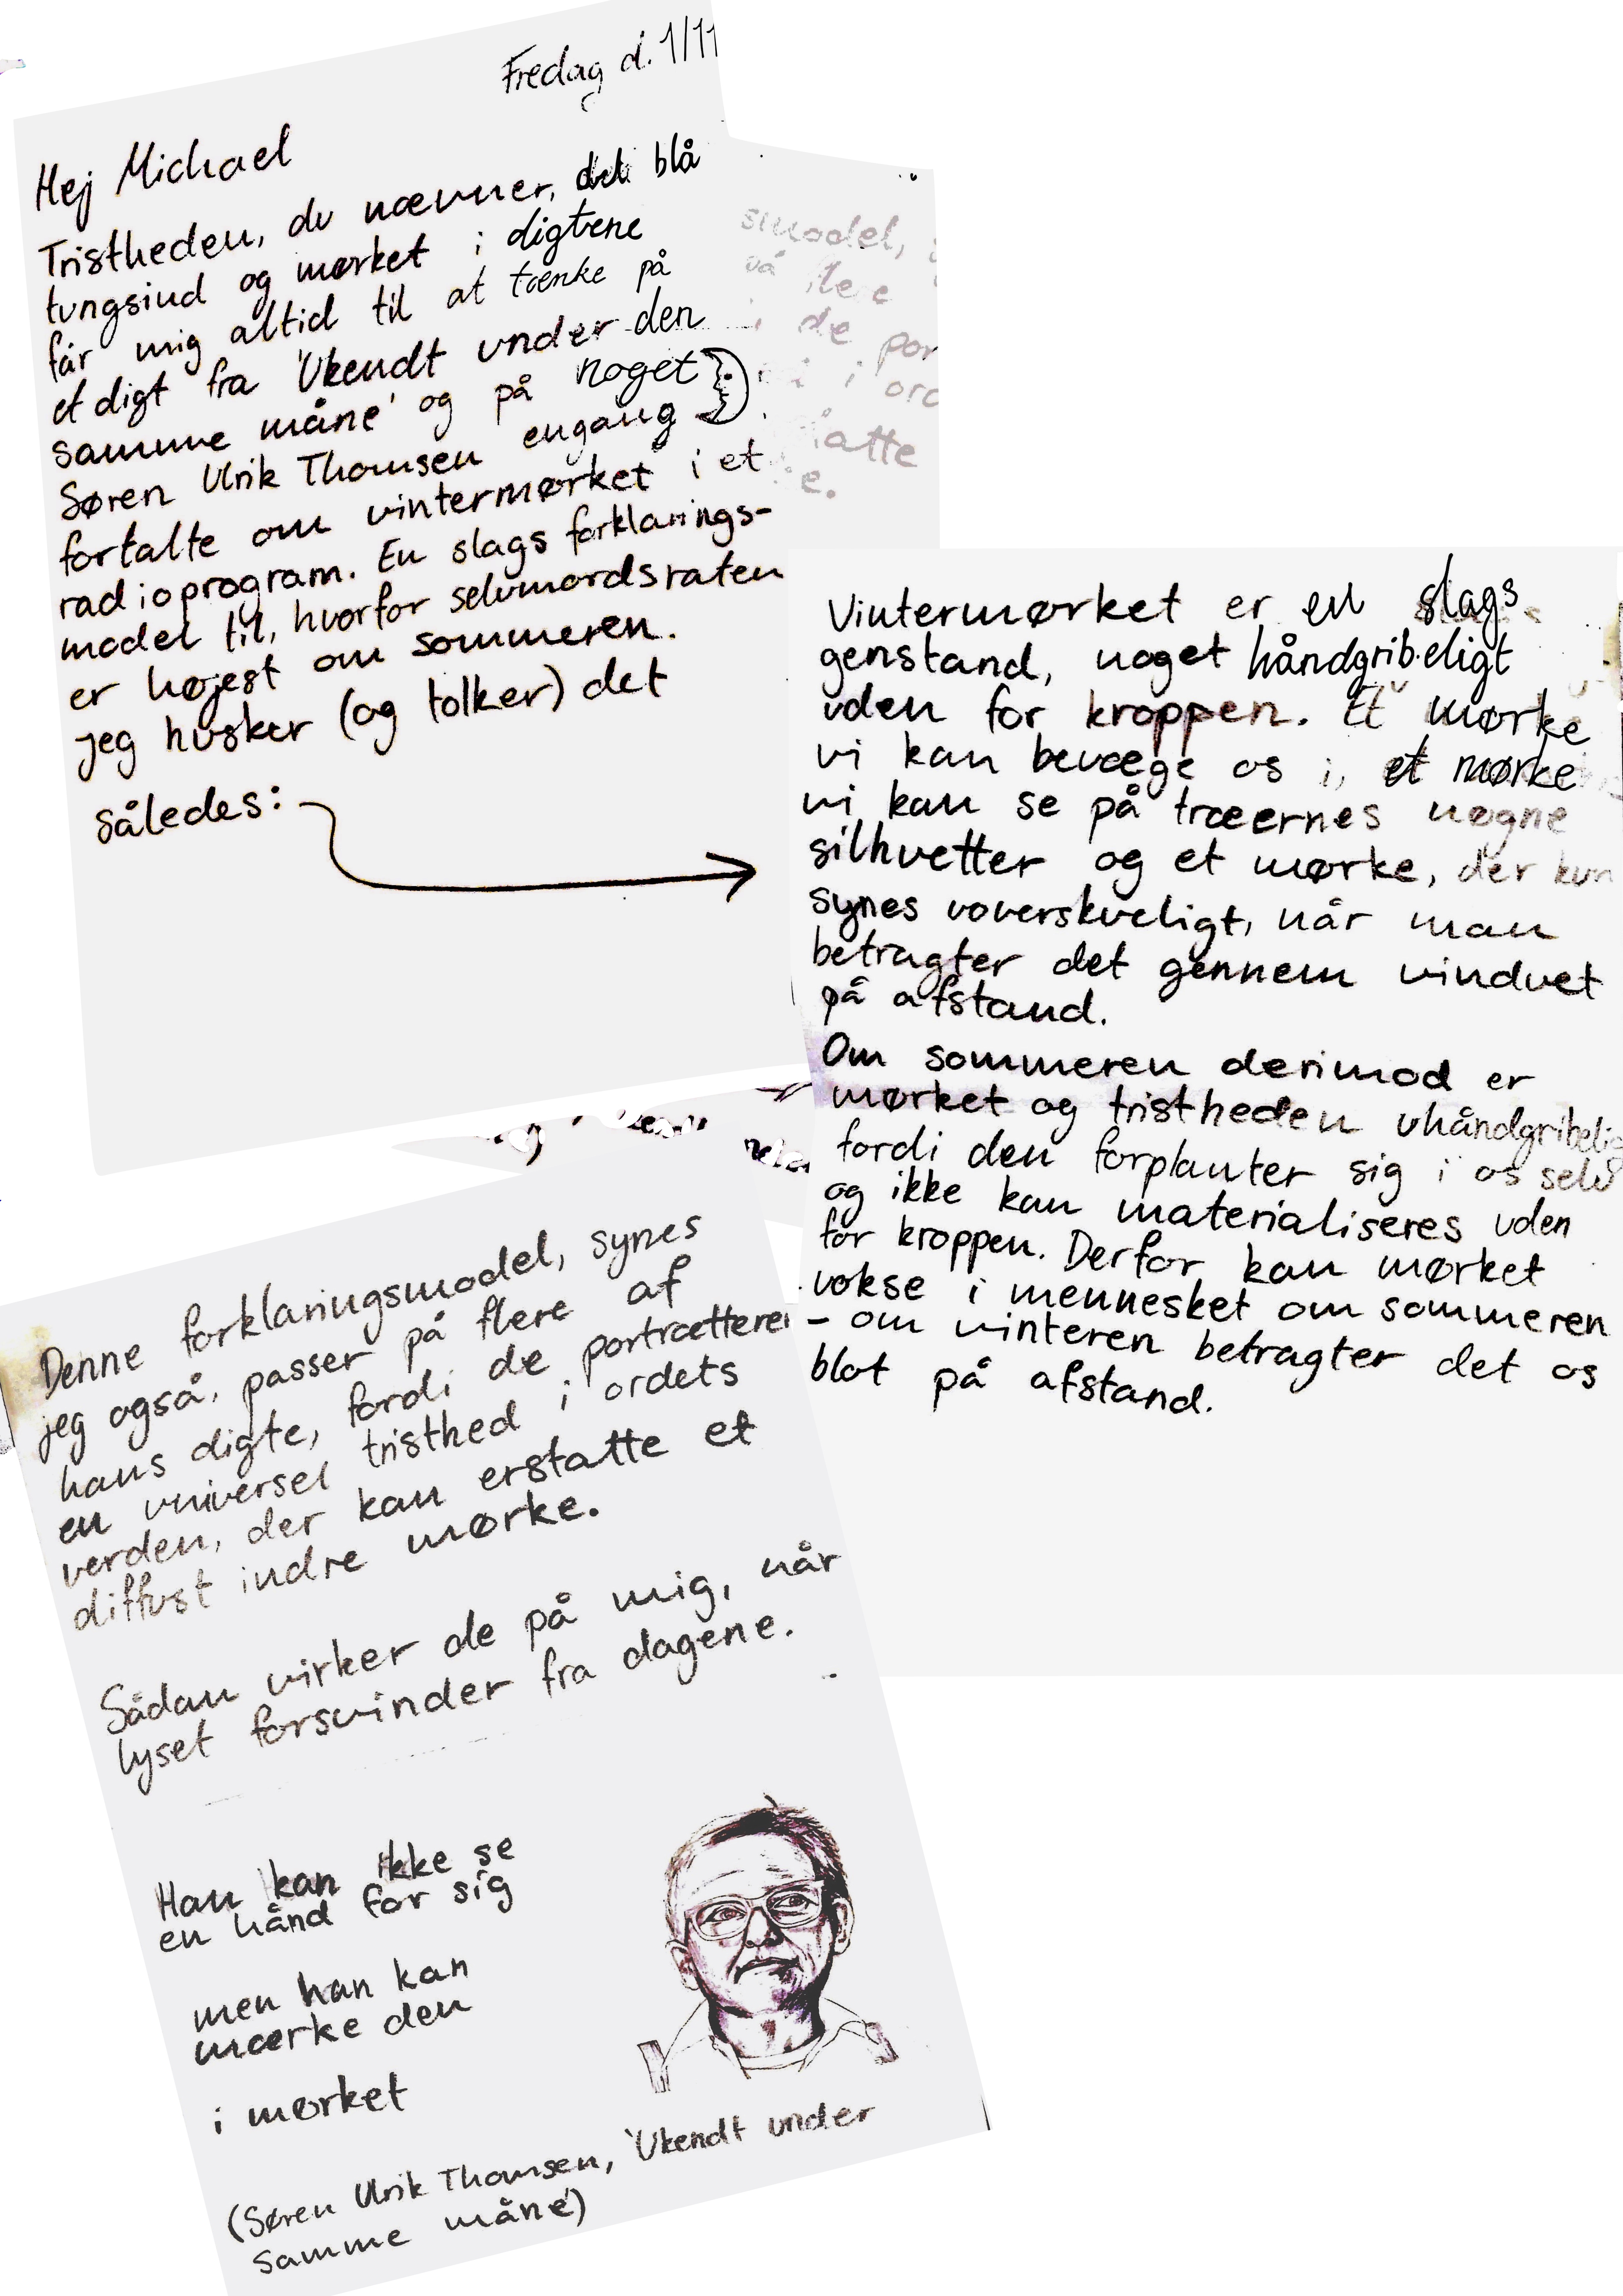 Fredag d. 1/11
Hej Michael
Tristheden, du nævner, det blå
tungsind og mørket i digtene
får mig altid til at tænke på
et digt fra 'Ukendt under den
samme måne' og på noget
Søren Ulrik Thomsen engang
fortalte om vintermørket i et
radioprogram. En slags forklarings-
model til, hvorfor selvmordsraten
er højest om sommeren.
jeg husker (og tolker) det
således:
smodel,
de por
i ord
atte
e.
Vintermørket er en slags
genstand, noget håndgribeligt
uden for kroppen. Et mørke
vi kan bevæge os i, et mørke
vi kan se på træernes nøgne
silhuetter og et mørke, der kun
synes uoverskueligt, når man
betragter det gennem vinduet
på afstand.
Om sommeren derimod er
mørket og tristheden uhåndgribelig
fordi den forplanter sig i os selv
og ikke kan materialiseres uden
for kroppen. Derfor kan mørket
vokse i mennesket om sommeren
- om vinteren betragter det os
blot på afstand.
Denne forklaringsmodel, synes
jeg også, passer på flere af
hans digte, fordi de portrætterer
en universel tristhed i ordets
verden, der kan erstatte et
diffust indre mørke.
Sådan virker de på mig, når
lyset forsvinder fra dagene.
Han kan ikke se
en hånd for sig
men han kan
mærke den
i mørket
(Søren Ulrik Thomsen, 'Ukendt under
samme måne')